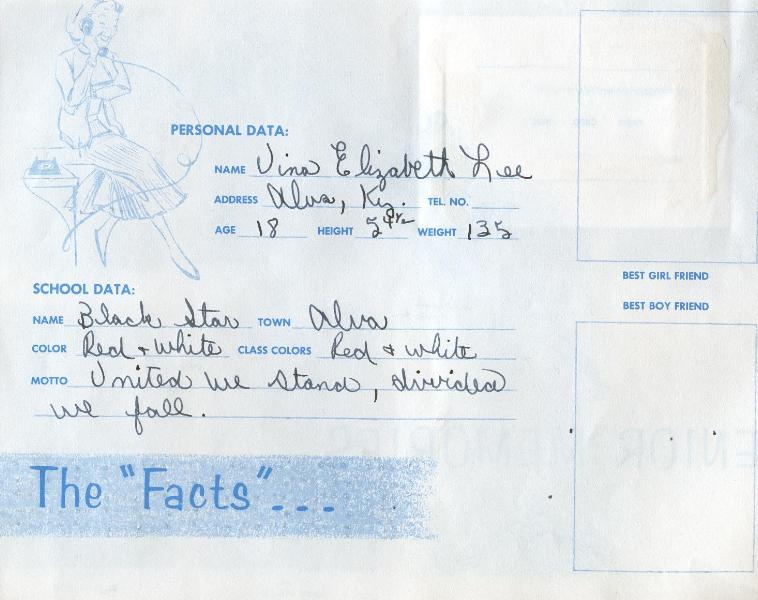 PERSONAL DATA:
NAME Vina Elizabeth Lee
ADDRESS Alva, Ky. TEL. NO.
AGE 18 HEIGHT 5 WEIGHT 135
BEST GIRL FRIEND
SCHOOL DATA:
BEST BOY FRIEND
NAME Black Star TOWN Alva
COLOR Red + White CLASS COLORS Red + white
MOTTO United we stand, divided
we fall.
The "Facts"...